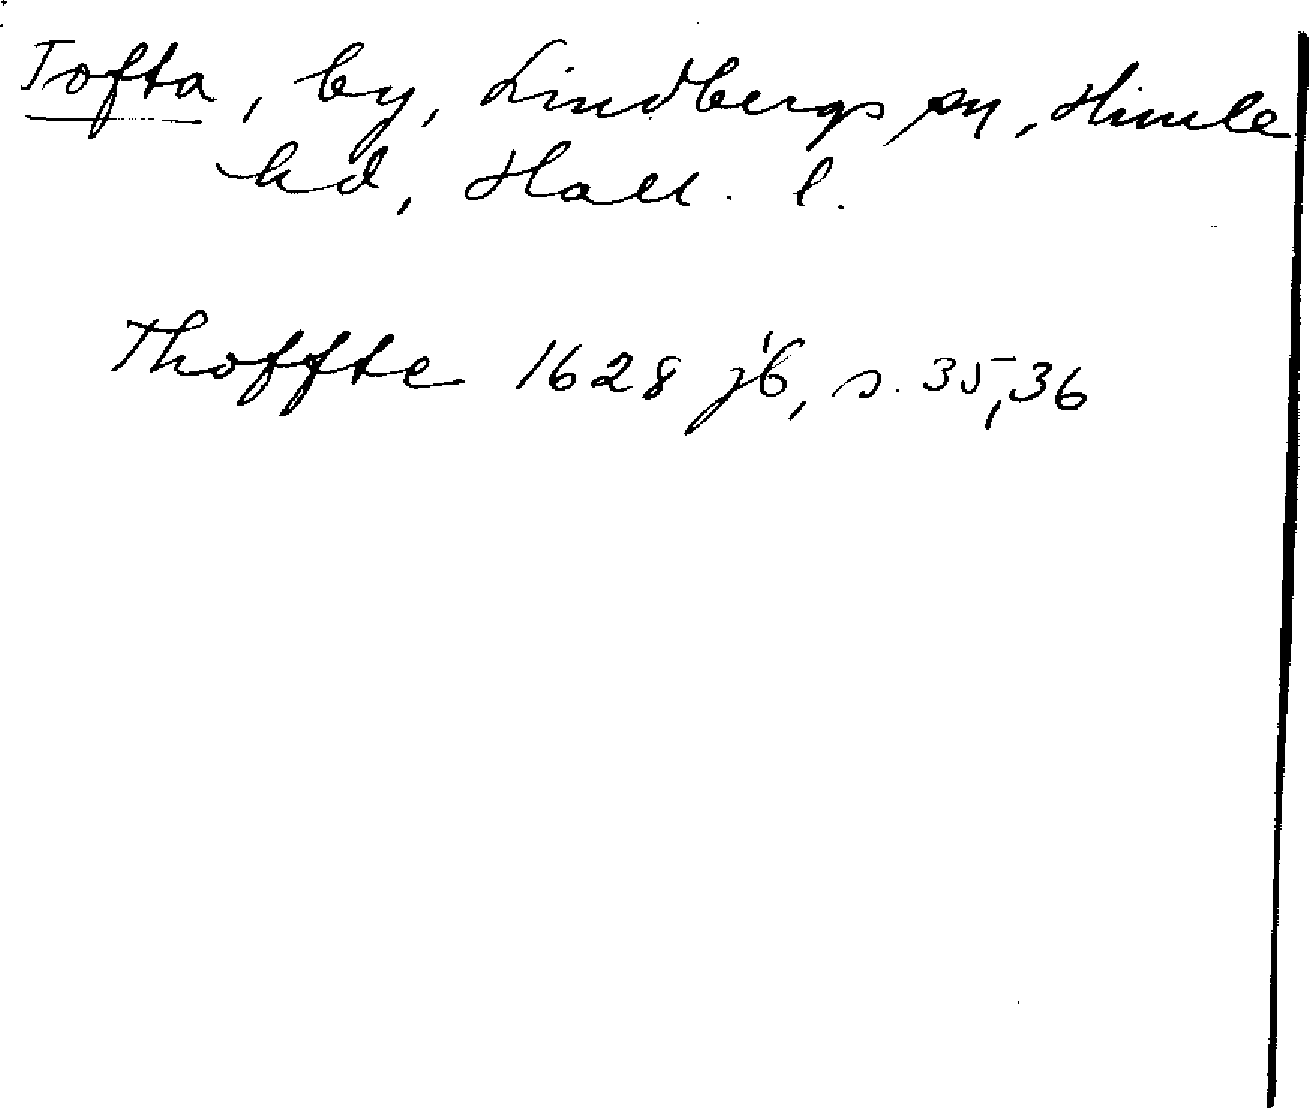 Tofta, by, Lindbergs sn, Himle
hd, Hall. l.
Thoffte 1628 jb, s. 35, 36